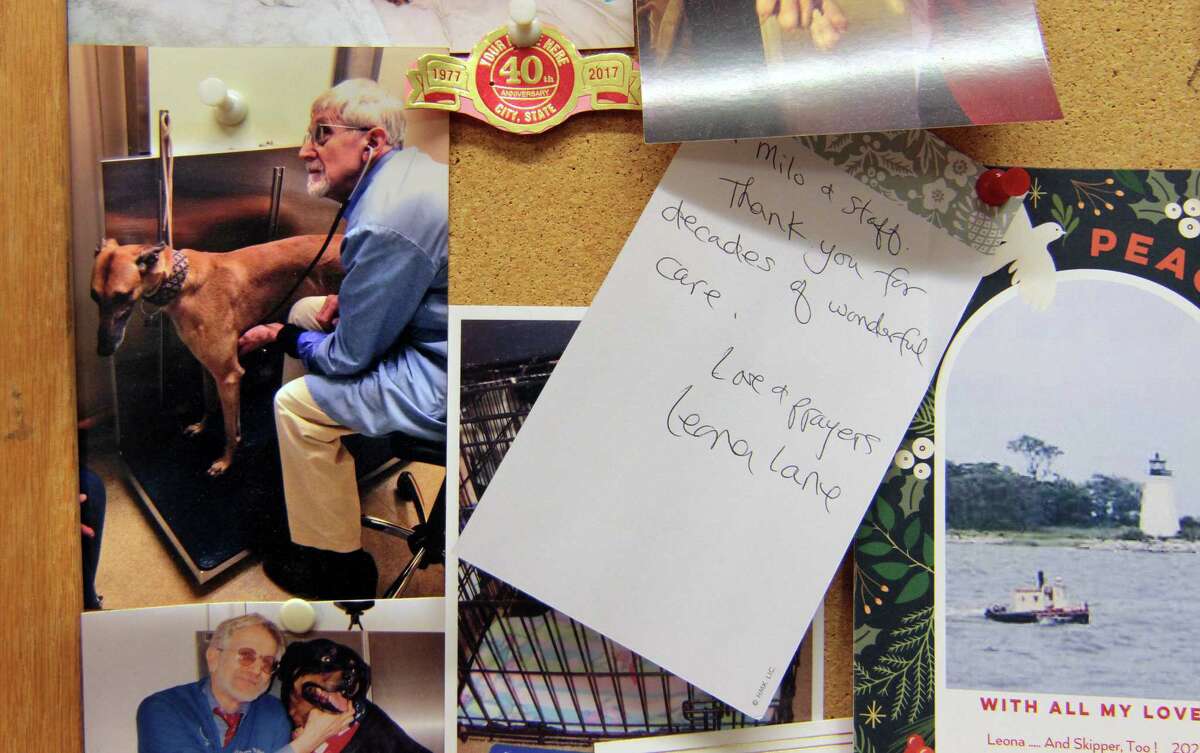 TOUR HERE
1977
40th
2017
ANNIVERSARY
CITY, STATE
Milo & staff.
Thank you for
decades of wonderful
care.
Love & Prayers
Leona Lane
© HMK. LIC.
PEAC
WITH ALL MY LOVE
Leona ..... And Skipper, Too ! 20